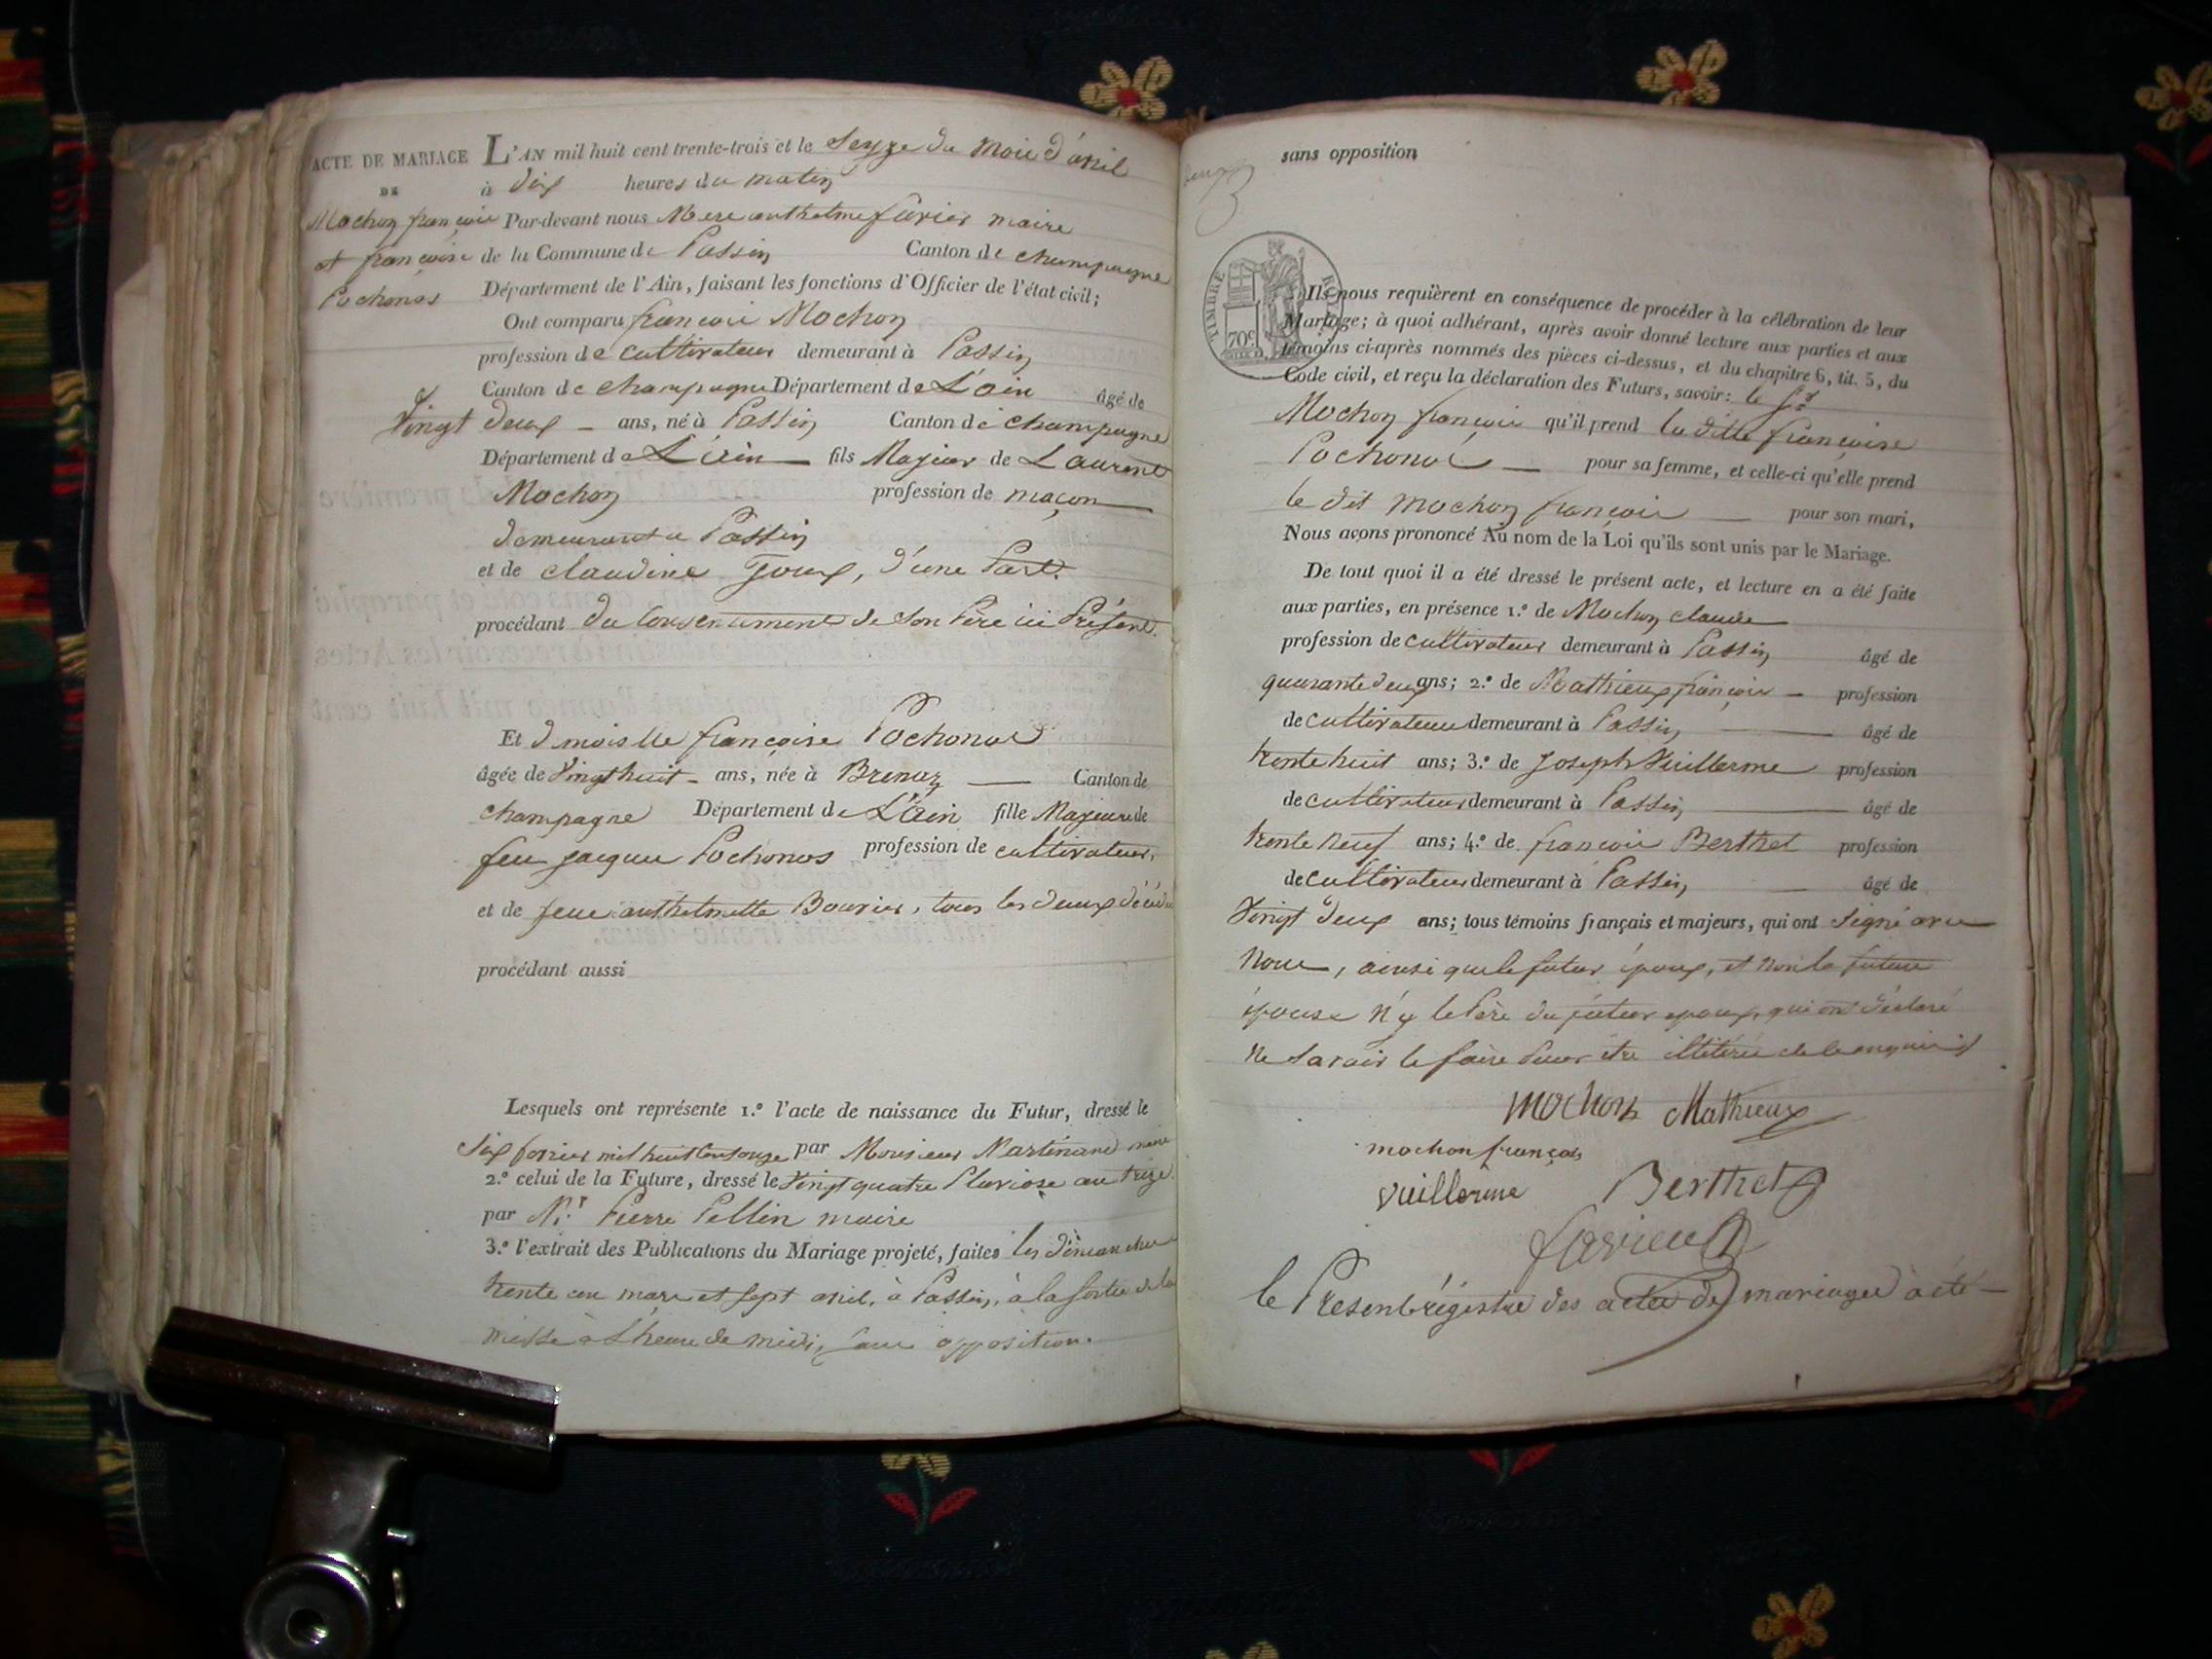 ACTE DE MARIAGE
DE
Mochon françois
et françoise
Pochonos
L'AN mil huit cent trente-trois et le Seyze du Mois d'avril
à dix heures du matin
Par-devant nous anthelme favier maire
de la Commune de Passin Canton de champagne
Département de l'Ain, faisant les fonctions d'Officier de l'état civil;
Ont comparu françois Mochon
profession de cultivateur demeurant à Passin
Canton de champagne Département de L'ain âgé de
Vingt deux ans, né à Passin Canton de champagne
Département de L'ain fils Majeur de Laurent
Mochon profession de maçon
demeurant a Passin
et de claudine Joux, d'une Part.
procédant du Consentement de Son Père ici Présent.
Et dmoiselle françoise Pochonos
âgée de Vingt huit ans, née à Brenaz Canton de
champagne Département de L'Ain fille Majeure de
feu jacque Pochonos profession de cultivateur,
et de feue anthelmette Bouvier, tous les deux
procédant aussi
Lesquels ont représente 1.º l'acte de naissance du Futur, dressé le
Six mil huit Cent onze par Monsieur Martinand maire
2.º celui de la Future, dressé le Vingt quatre Pluviose an treize
par Mr. Pierre Pellin maire
3.º l'extrait des Publications du Mariage projeté, faites les dimanches
trente un mars et sept avril, à Passin, à la sortie de la
messe à L'heure de midi, sans opposition.
sans opposition
TIMBRE ROYAL
70c
Ils nous requièrent en conséquence de procéder à la célébration de leur
Mariage; à quoi adhérant, après avoir donné lecture aux parties et aux
témoins ci-après nommés des pièces ci-dessus, et du chapitre 6, tit. 5, du
Code civil, et reçu la déclaration des Futurs, savoir: le Sr
Mochon françois qu'il prend la ditte françoise
Pochonos pour sa femme, et celle-ci qu'elle prend
le dit Mochon françois pour son mari,
Nous avons prononcé Au nom de la Loi qu'ils sont unis par le Mariage.
De tout quoi il a été dressé le présent acte, et lecture en a été faite
aux parties, en présence 1.º de Mochon claude
profession de cultivateur demeurant à Passin âgé de
quarante deux ans; 2.º de Mathieux françois profession
de cultivateur demeurant à Passin âgé de
trente huit ans; 3.º de Joseph Vuillerme profession
de cultivateur demeurant à Passin âgé de
trente neuf ans; 4.º de françois Berthet profession
de cultivateur demeurant à Passin âgé de
Vingt deux ans; tous témoins français et majeurs, qui ont Signé avec
Nous, ainsi que le futur époux, et non la future
épouse n'y le Père du futur epoux, qui ont déclaré
ne Savoir le faire Pour être illitéré de ce enquis
Mochon Mathieux
mochon françois
vuillerme Berthet
favier
le Present régistre des actes de mariages à été